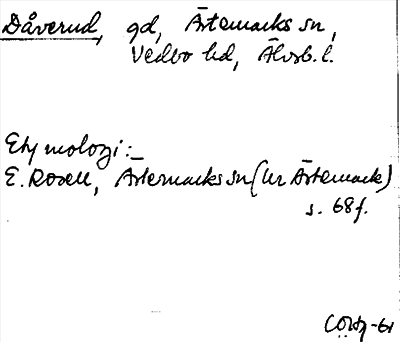 Dåverud, gd, Ärtemarks sn,
Vedbo hd, Älvsb. l.
Etymologi:
E. Rosell, Ärtemarks sn (ur Ärtemark)
s. 68 f.
-61